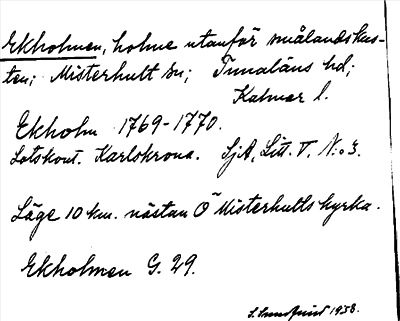 Ekholmen, holme utanför smålandskus-
ten; Misterhult sn; Tunaläns hd;
Kalmar l.
Ekholm 1769-1770.
Lotskont. Karlskrona. SjA, Litt. V, N:o 3.
Läge 10 km. nästan O Misterhults kyrka.
Ekholmen G. 29.
1938.